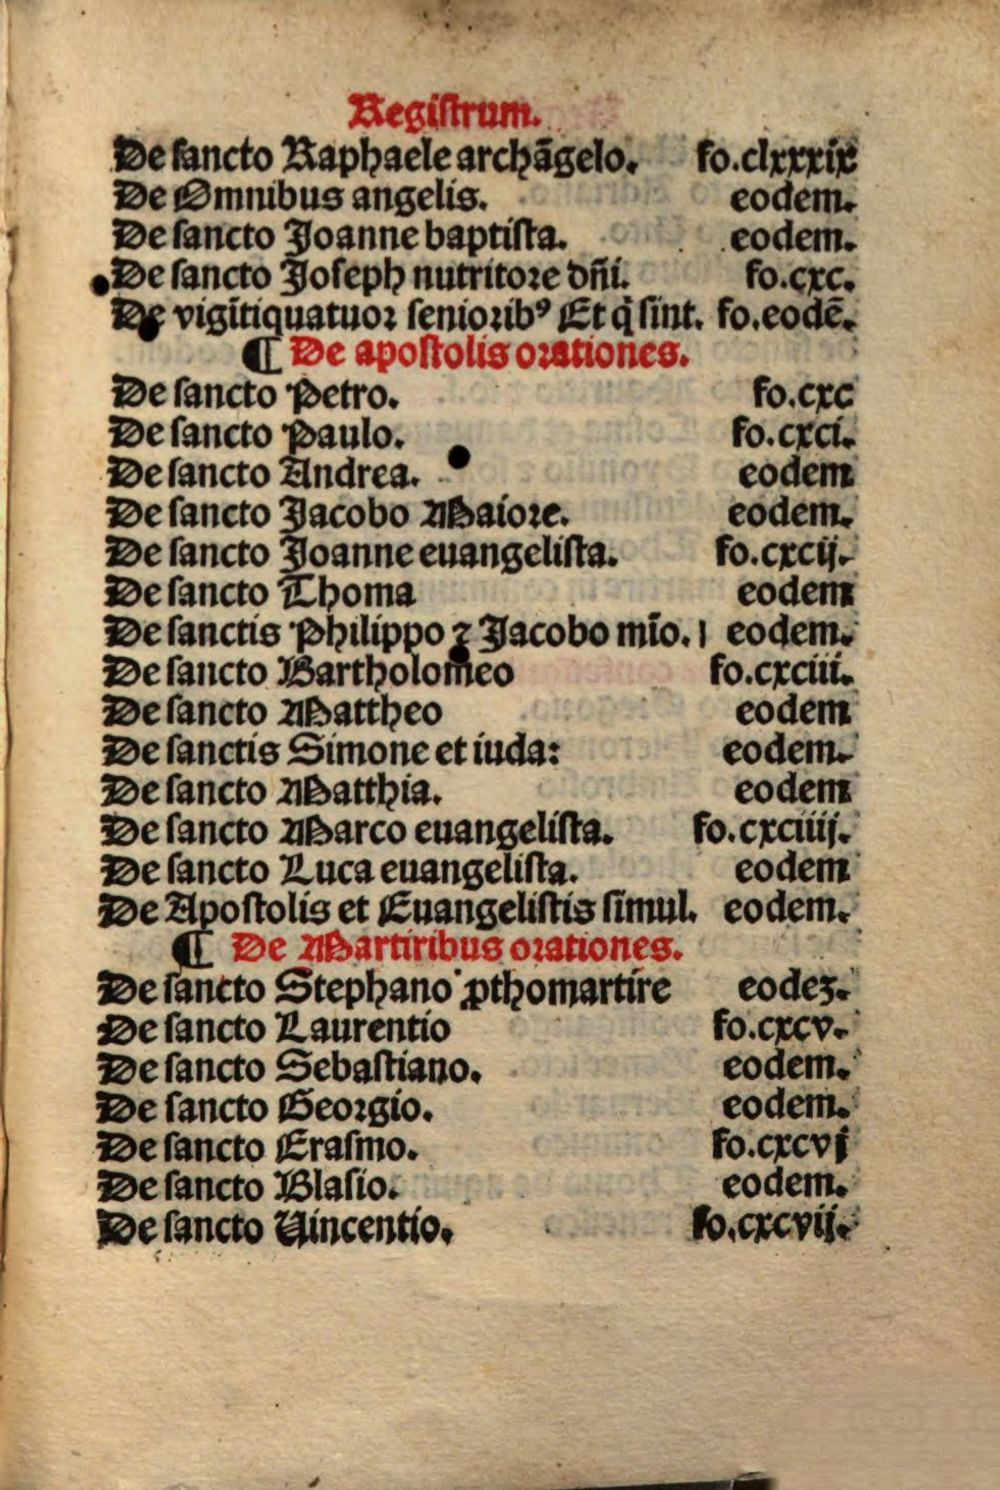 Registrum.
De sancto Raphaele archāgelo. fo.clxxxix
De Omnibus angelis. eodem.
De sancto Joanne baptista. eodem.
De sancto Joseph nutritore dñi. fo.cxc.
De vigītiquatuor senioribꝰ Et q̄ sint. fo.eodē.
¶ De apostolis orationes.
De sancto Petro. fo.cxc
De sancto Paulo. fo.cxci.
De sancto Andrea. eodem
De sancto Jacobo Maiore. eodem.
De sancto Joanne euangelista. fo.cxcij.
De sancto Thoma eodem
De sanctis Philippo ⁊ Jacobo mīo. eodem.
De sancto Bartholomeo fo.cxciii.
De sancto Mattheo eodem
De sanctis Simone et iuda: eodem.
De sancto Matthia. eodem
De sancto Marco euangelista. fo.cxciiij.
De sancto Luca euangelista. eodem
De Apostolis et Euangelistis simul. eodem.
¶ De Martiribus orationes.
De sancto Stephano ꝓthomartire eodeꝫ.
De sancto Laurentio fo.cxcv.
De sancto Sebastiano. eodem.
De sancto Georgio. eodem.
De sancto Erasmo. fo.cxcvj
De sancto Blasio. eodem.
De sancto Vincentio. fo.cxcvij.